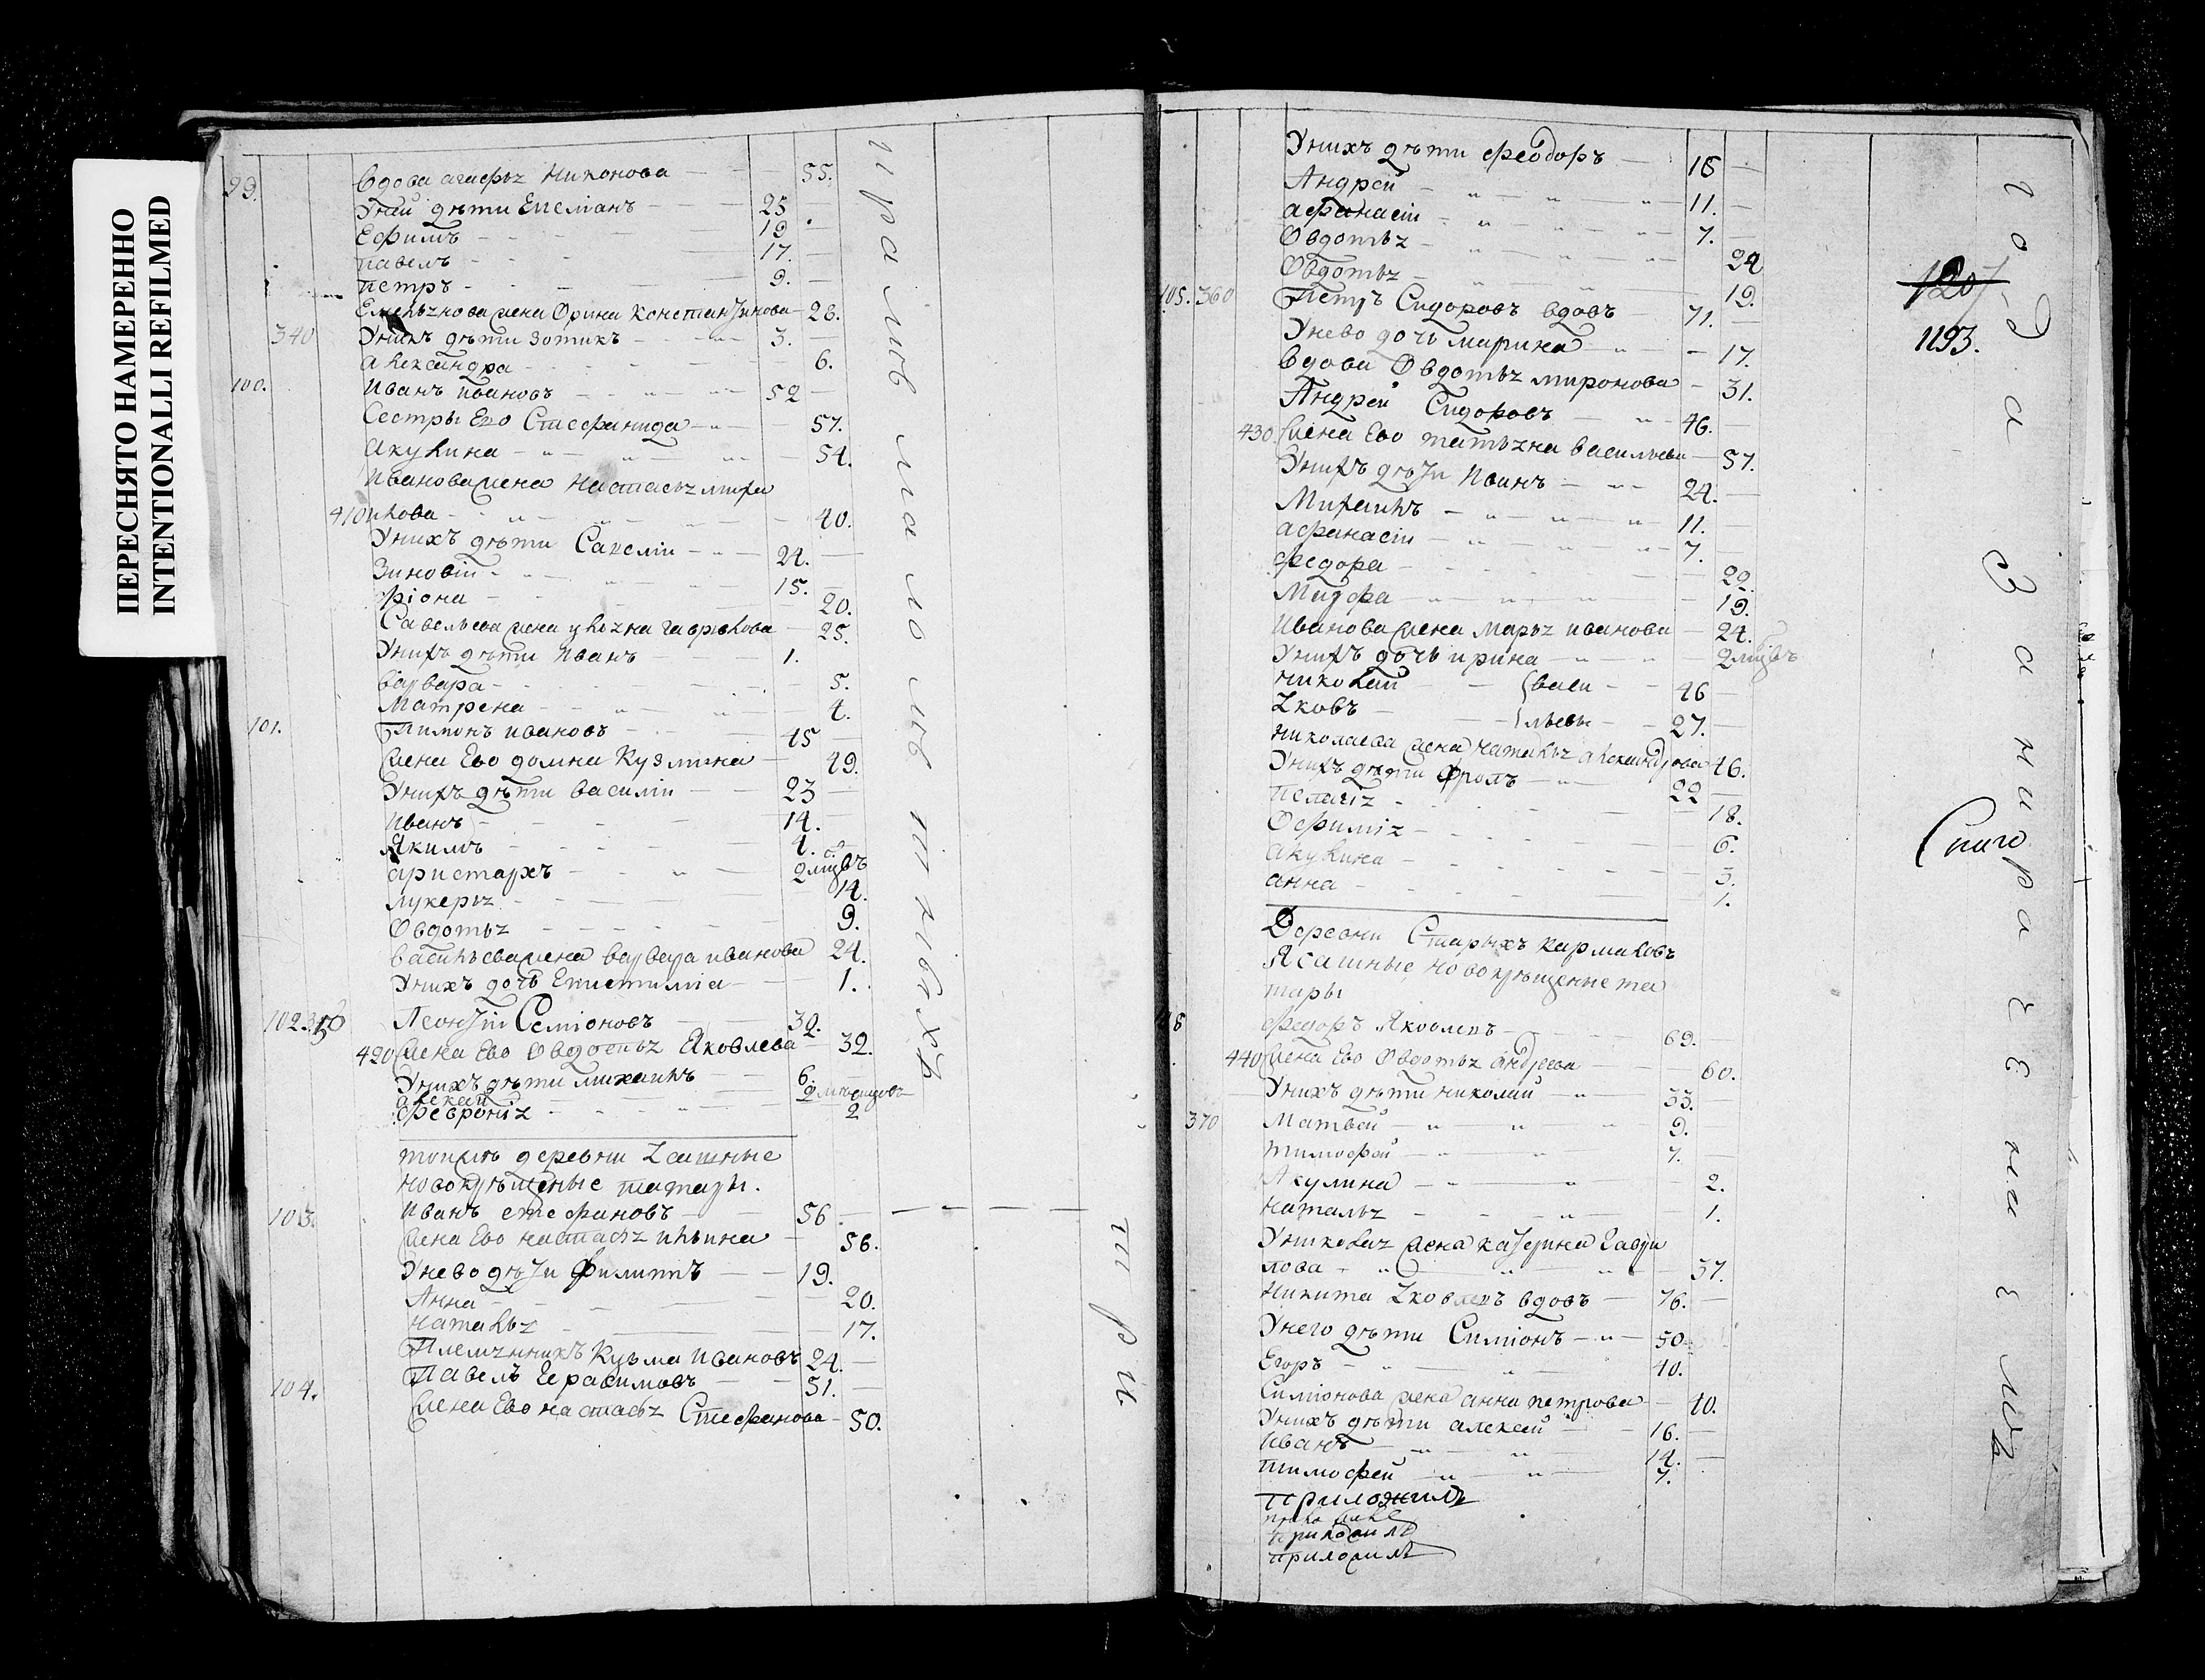 ПЕРЕСНЯТО НАМЕРЕННО
INTENTIONALLI REFILMED
99. вдова агафья Никонова 55.
Уней дѣти Емелианъ 25
Ефимъ 19
павелъ 17.
петръ 9.
Емельянова жена Орина Константинова 28.
340 Унихъ дѣти Зотикъ 3.
александра 6.
100. Иванъ Ивановъ 52
Сестры Ево Стефанида 57.
акулина 54.
Иванова жена Настасья михаи
410 илова 40.
Унихъ дѣти Савелий 24.
Зиновій 15.
ріона 20.
Савельева жена улияна гаврилова 25.
Унихъ дѣти Иванъ 1.
варвара 5.
Матрена 4.
101. Пимонъ Ивановъ 45
жена Ево домна Кузмина 49.
Унихъ дѣти василій 23
Иванъ 14.
Якимъ 4.
аристархъ 2 мцовъ
лукерья 14.
Овдотья 9.
васильева жена варвара иванова 24.
Унихъ дочь Епистимиа 1.
102. 350 Леонтій Семіоновъ 30.
420 жена Ево Овдотья Яковлева 32.
Унихъ дѣти михаилъ 6.
алексей 2 мѣсяцовъ
февронія 2
тоижъ деревни ясашные
новокрѣщеные татары.
103. Иванъ стефановъ 56.
жена Ево настасья ильина 56.
Унево дѣти Филиппъ 19.
Анна 20.
наталья 17.
Племянникъ Кузьма Ивановъ 24.
104. Павелъ Герасимовъ 51.
жена Ево настасья Стефанова 50.
при
Унихъ дѣти феодоръ 18
Андрей 11.
афанасій 7.
Овдотья 24
Овдотья 19.
105. 360 Петръ Сидоровъ вдовъ 71.
Унево дочь марина 17.
вдова Овдотья миронова 31.
Андрей Сидоровъ 46.
430 жена Ево татьяна васильева 57.
Унихъ дѣти Иванъ 24.
Михаилъ 11.
афанасій 7.
федора 22.
Мидора 19.
Иванова жена марья иванова 24.
Унихъ дочь ирина 2 мцовъ
николай } васи 46
яковъ } льевы 27.
николаева жена наталья александрова 46.
Унихъ дѣти Фролъ 22
пелагія 18.
Офимія 6.
акулина 3.
анна 1.
Деревни Старыхъ кармаловъ
Ясашные новокрѣщеные та
тары
федоръ Яковлевъ 69.
440 жена Ево Овдотья андреева 60.
Унихъ дѣти николай 33.
370 Матвей 9.
тимофей 7.
Акулина 2.
наталья 1.
Униколая жена катерина гаври
лова 37.
никита яковлевъ вдовъ 76.
Унего дѣти Симіонъ 50.
Егоръ 40.
Симіонова жена анна петрова 40.
Унихъ дѣти алексей 16.
Иванъ 14.
тимофей 7.
приложилъ
приложилъ
приложилъ
года Занира
1207
1193.